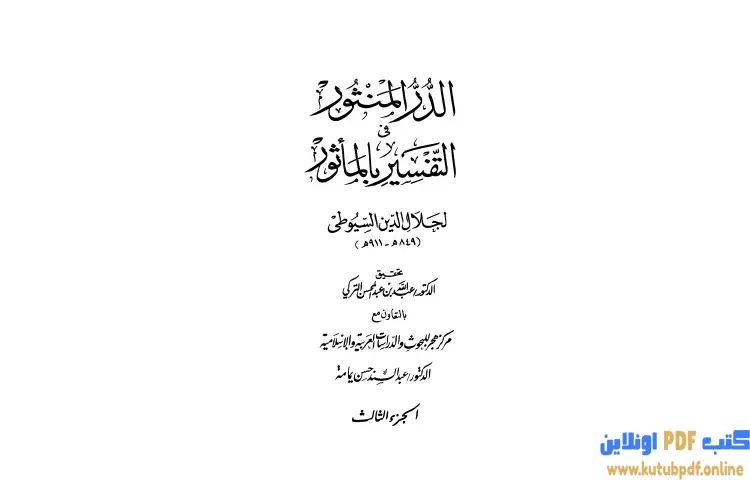 الدُّرُّ المَنْثُور
فى
التَّفْسِيرِ بِالمَأْثُور
لجَلَالِ الدِّينِ السِّيُوطِى
(٨٤٩هـ - ٩١١هـ)
تحقيق
الدكتور/عبد الله بن عبد المحسن التركي
بالتعاون مع
مركز هجر للبحوث والدراسات العربية والإسلامية
الدكتور/عبد السند حسن يمامة
الجزء الثالث
كتب PDF اونلاين
www.kutubpdf.online